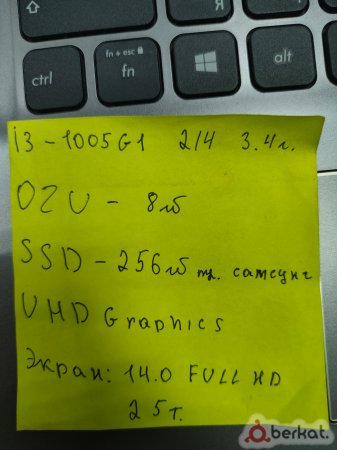 Я
fn + esc
ctrl
fn
alt
i3 - 1005G1 2/4 3.4г.
OZU - 8гб
SSD - 256гб пр. самсунг
UHD Graphics
Экран: 14.0 FULL HD
25т.
berkat.